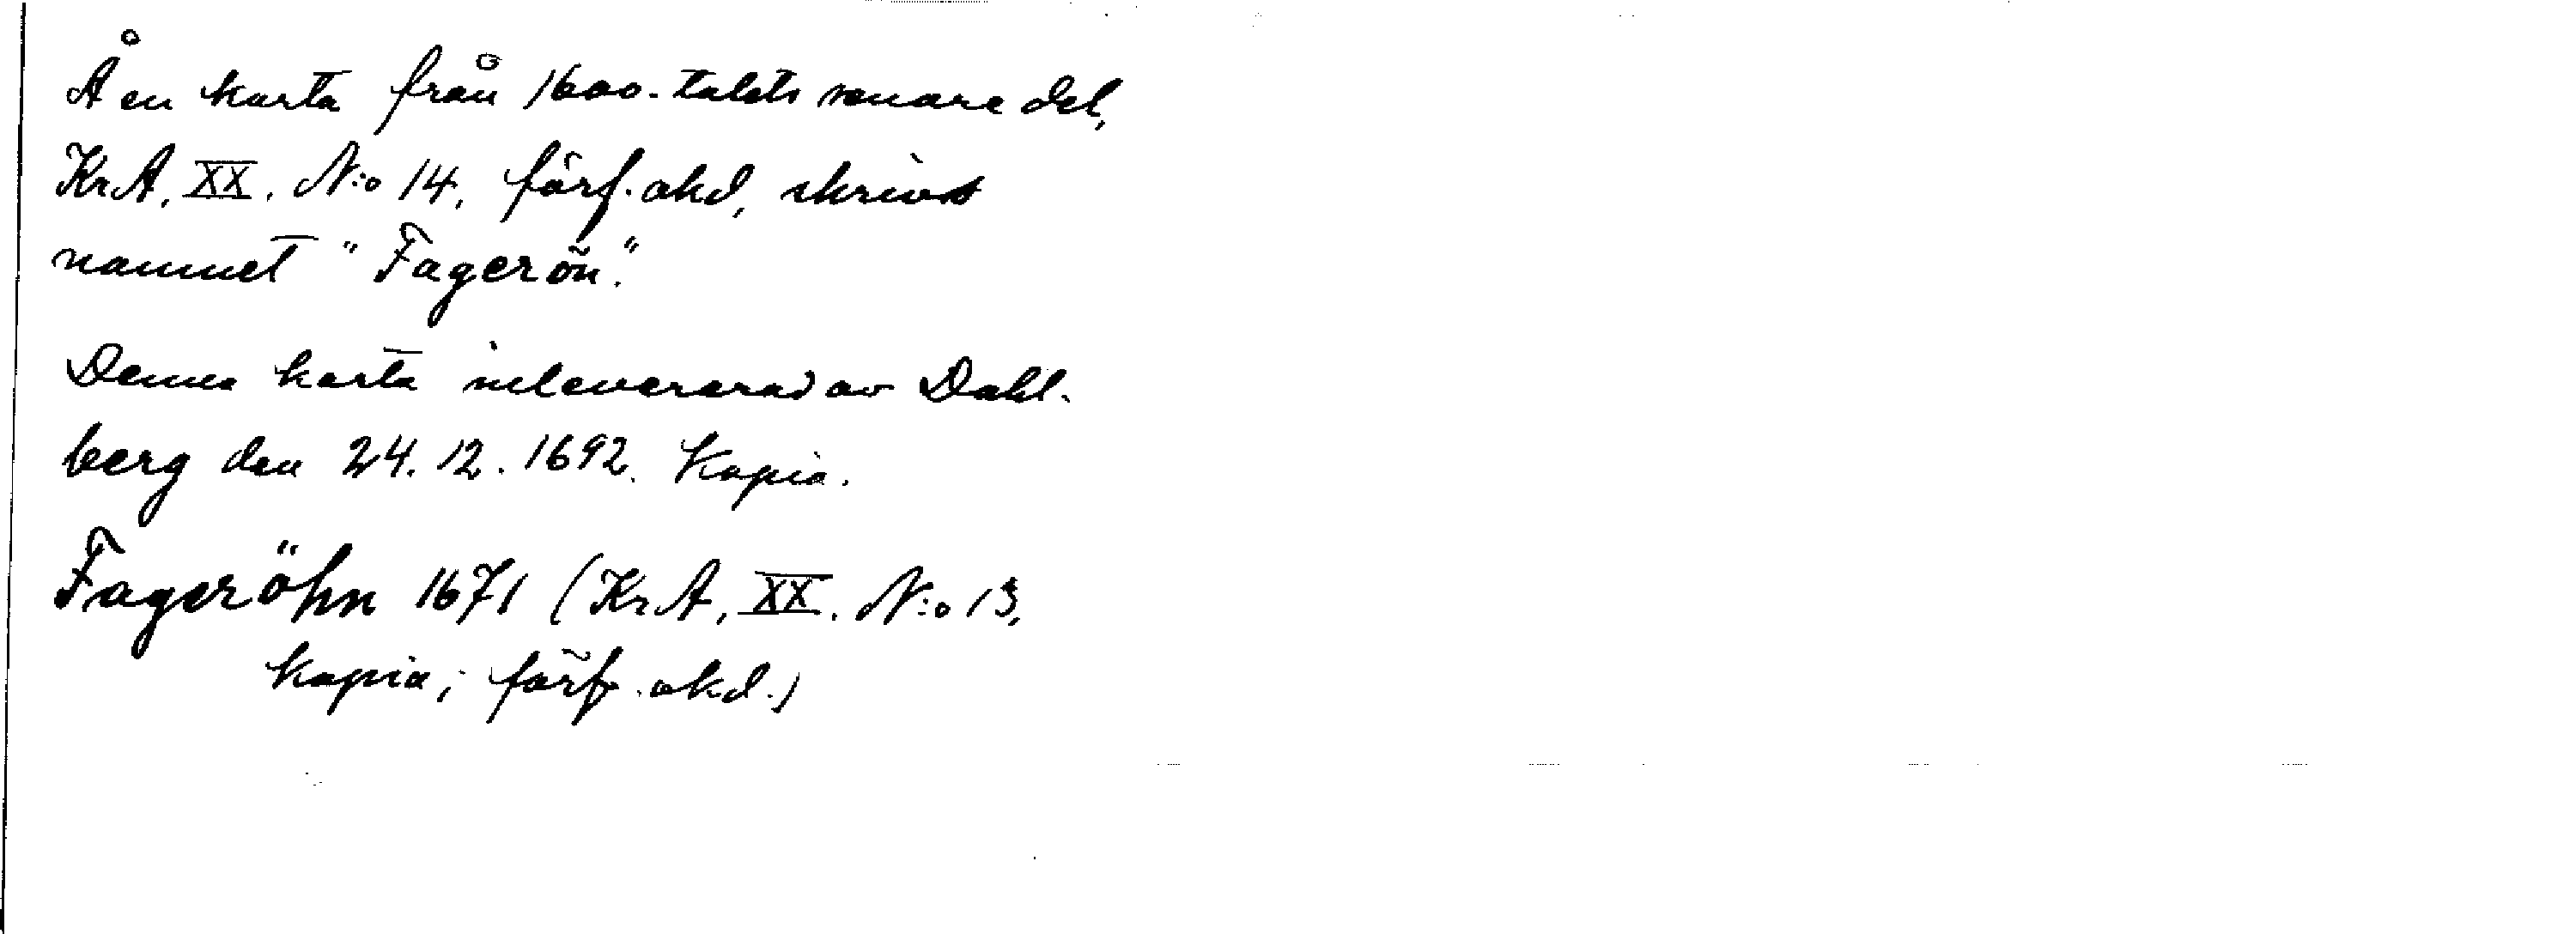 Å en karta från 1600-talets senare del,
KrA, XX. N:o 14, förf. okd, skrives
namnet "Fagerön".
Denna karta inlevererad av Dahl-
berg den 24.12.1692. Kopia.
Fageröhn 1671 (KrA, XX. N:o 13,
kopia; förf. okd.)